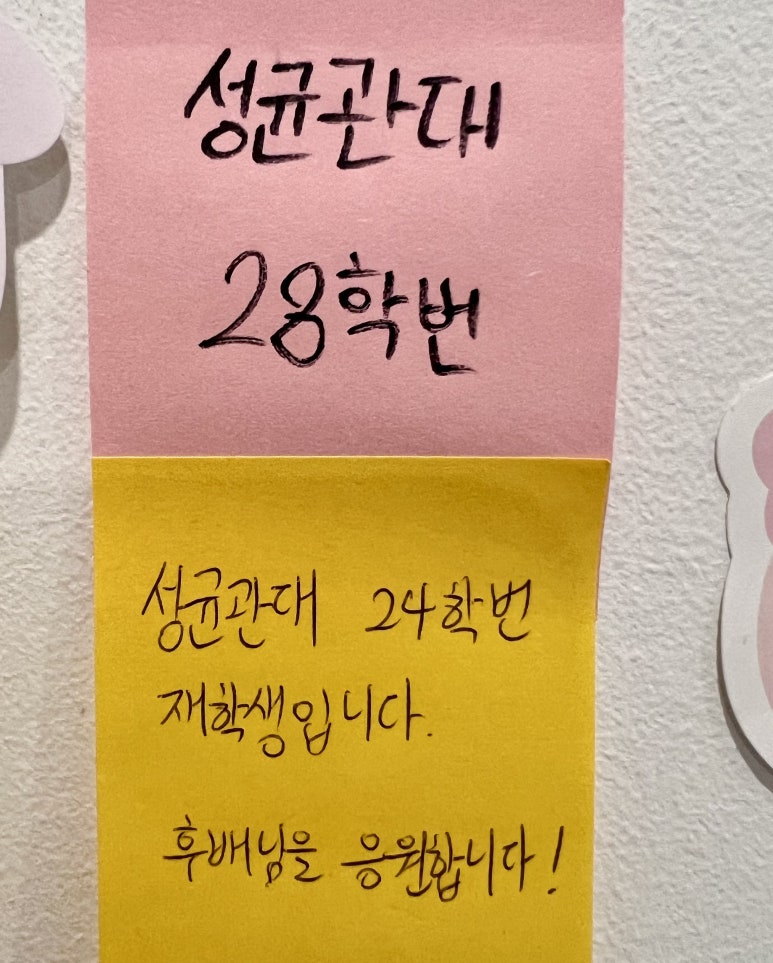 성균관대
28학번
성균관대 24학번
재학생입니다.
후배님을 응원합니다!